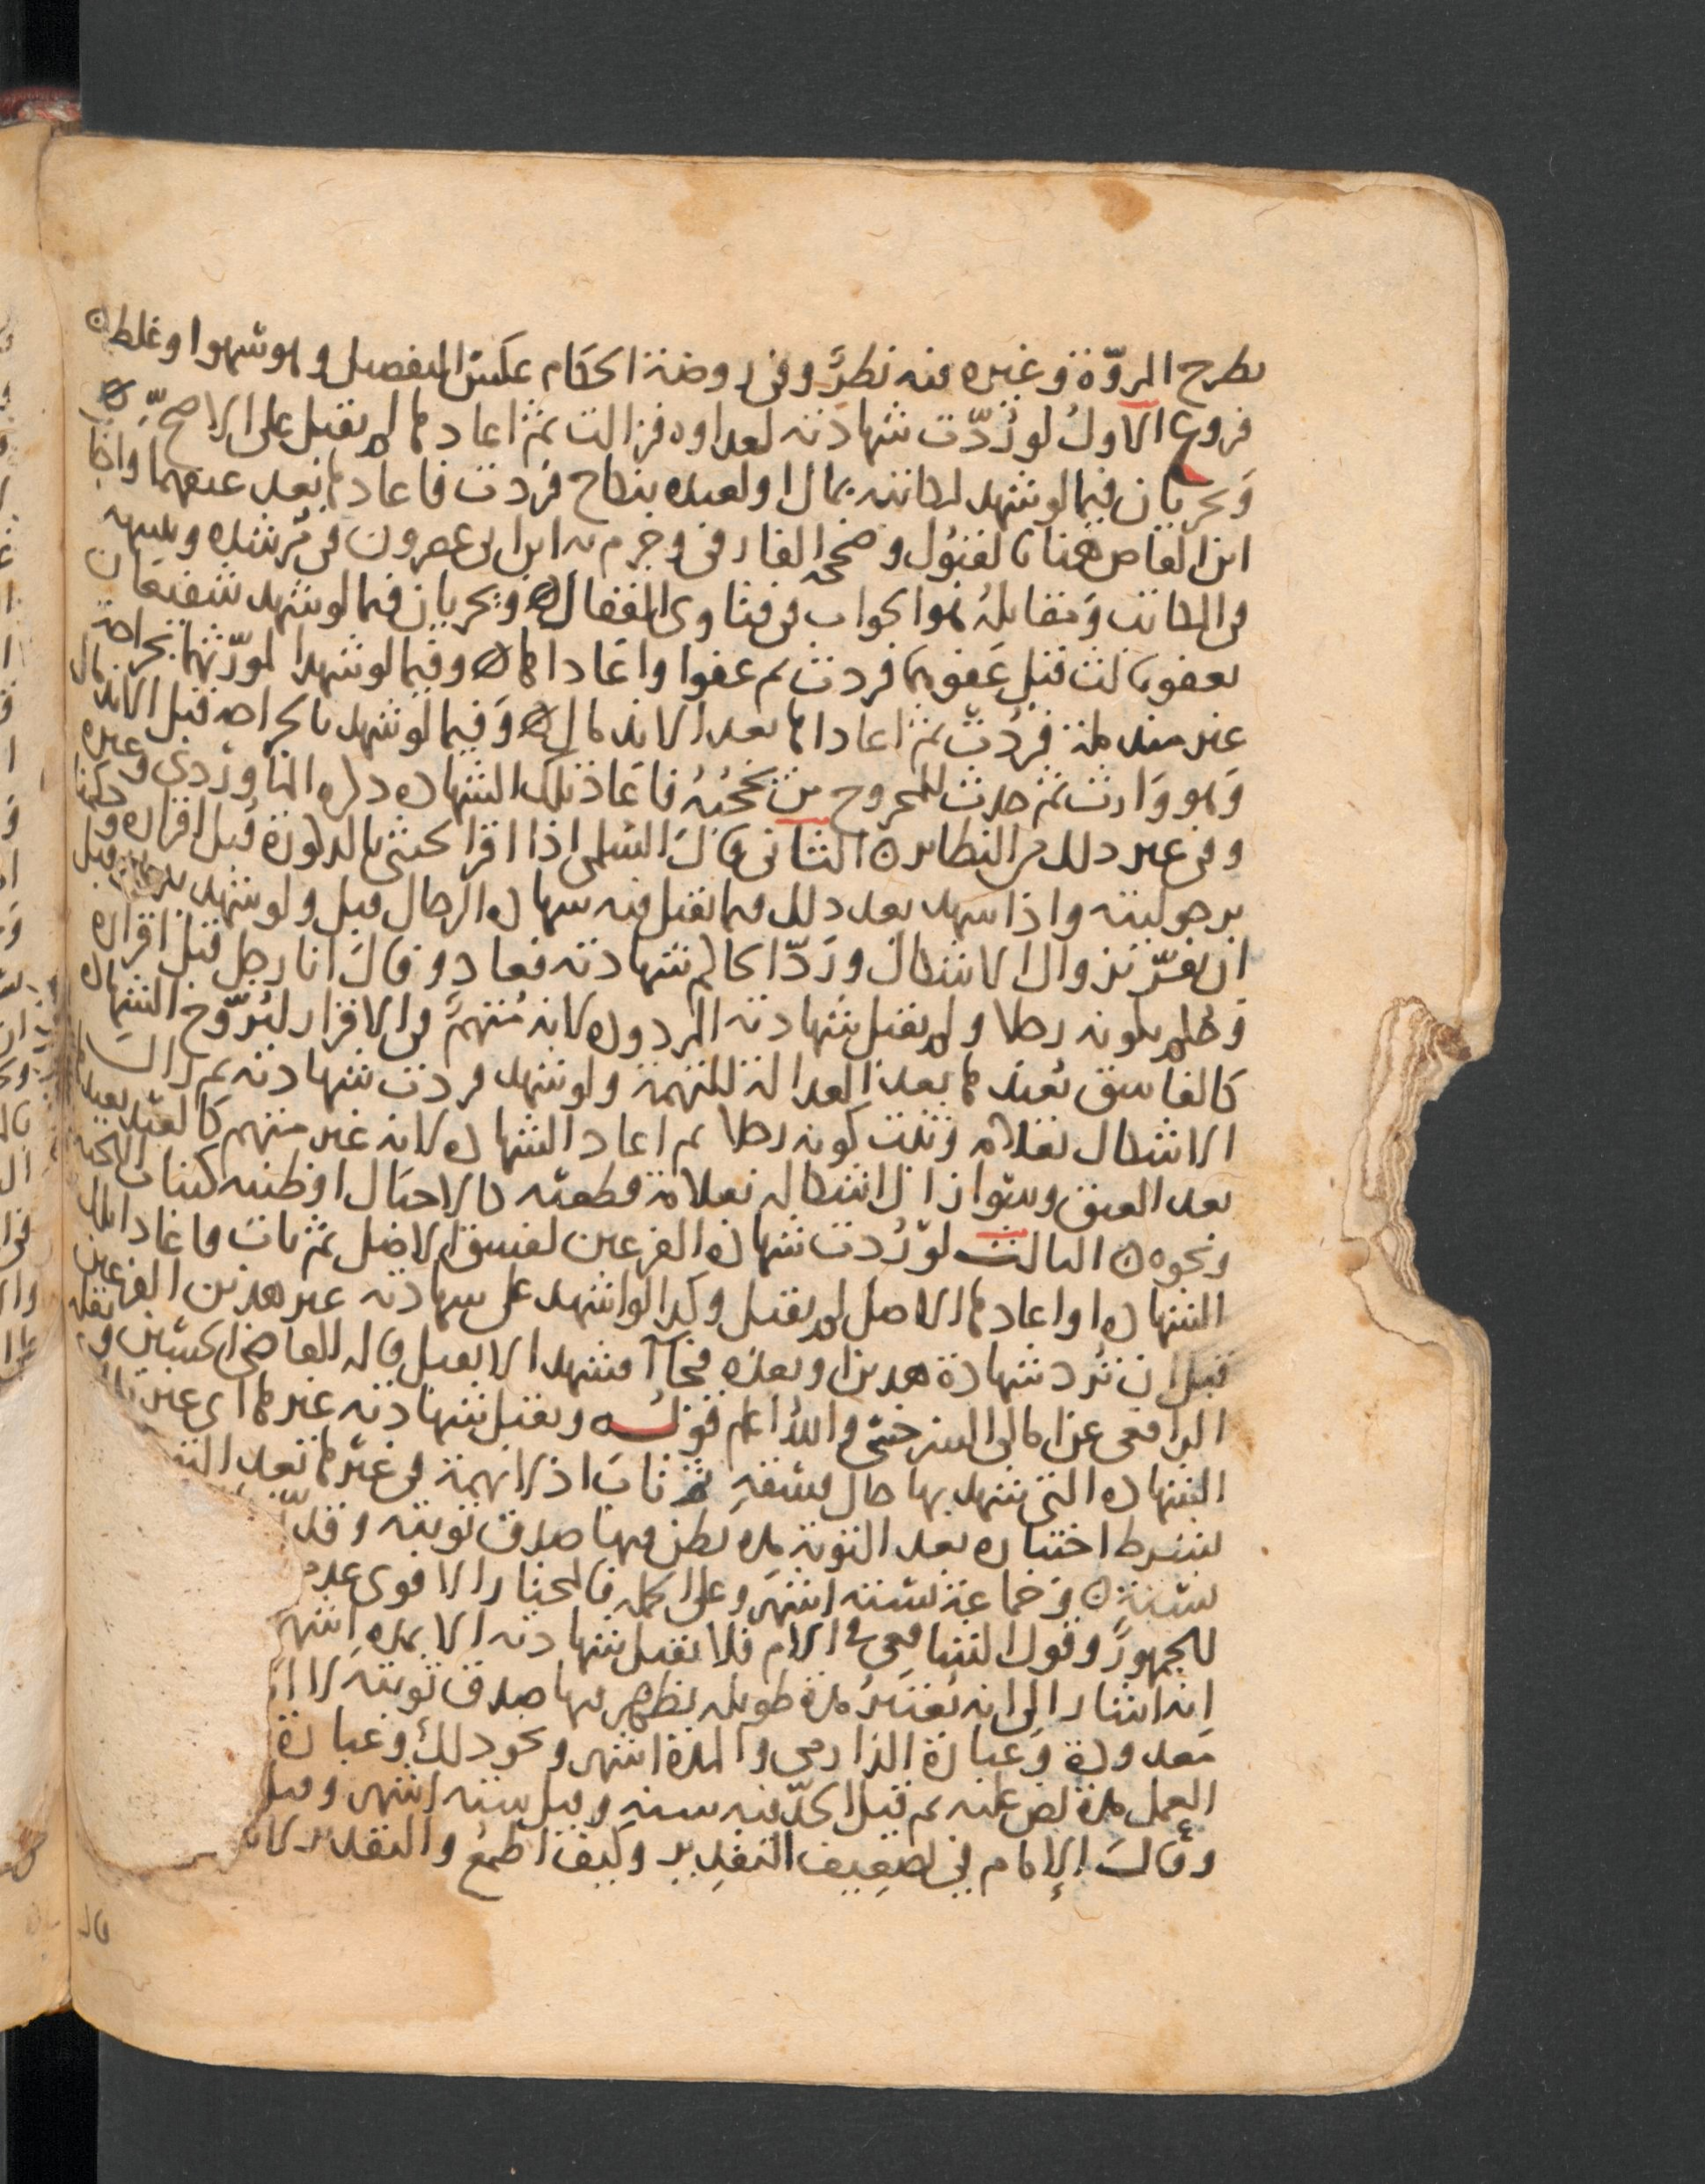 بطرح المروّة وغيره فيه نظرٌ وفي روضة الحكام عكس التفصيل وهو سهوا وغلط
فروع الاول لو رُدّت شهادته لعداوه فزالت ثم اعادها لم يقبل على الاصح
ويجريان فيما لو شهد لمكاتبه بمال او لعبده بنكاح فردت فاعادها بعد عتقهما واجاب
ابن القاص هنا بالقبول وصححه الفارقي وجزم به ابن ابي عصرون في مرشده وتنبيهه
في المكاتب ومقابله هو الجواب في فتاوى القفال ويجريان فيما لو شهد شفيعان
بعفو ثالث قبل عفوهما فردت ثم عفوا واعاداها وفيما لو شهدا لمورّثهما بجراحة
غير مندملة فردت ثم اعاداها بعد الاندمال وفيما لو شهد بالجراحه قبل الاندمال
وهو وارث ثم حدث للمجروح من يحجبه فاعاد تلك الشهاده ذكره الماوردي وغيره
وفي غير ذلك من النظاير الثاني قال السلمي اذا اقر الخنثى بالذكورة قبل اقراره وحكمنا
برجوليته واذا شهد بعد ذلك فيما تقبل فيه شهاده الرجال قبل ولو شهد قبل
ان يفسر بزوال الاشكال وردّ الحاكم شهادته فعاد وقال انا رجل قبل اقراره
وحكم بكونه رجلا ولم يقبل شهادته المردوده لانه متهم في الاقرار ليروّج الشهاده
كالفاسق يعيدها بعد العدالة للتهمة ولو شهد فردت شهادته ثم زال
الاشكال بعلامه وثبت كونه رجلا ثم اعاد الشهاده لانه غير متهم كالعبد يعيدها
بعد العتق وسوا زال اشكاله بعلامة قطعيه كالاحبال او ظنيه كنبات اللحية
ونحوه الثالث لو رُدت شهاده الفرعين لفسق الاصل ثم تاب فاعادا تلك
الشهاده او اعادها الاصل لم يقبل وكذا لو اشهد على شهادته غير هذين الفرعين
قبل ان ترد شهادة هذين وبعده فجاآ فشهدا لا يقبل قاله القاضي الحسين ونقله
الرافعي عن امالي السرخسي والله اعلم قوله وتقبل شهادته غيرها اي غير تلك
الشهاده التي شهد بها حال فسقه ثم تاب اذ لا تهمة في غيرها بعد
بشرط اختباره بعد التوبه مده يظن فيها صدق توبته وقد
سنة وجماعة ستة اشهر وعلى الجمله فالمختار الاقوى عدم
للجمهور وقول الشافعي في الام فلا تقبل شهادته الا بمده اشهر
انه اشار الى انه يُعتبر مدة طويله يظهر فيها صدق توبته لا
معدودة وعبارة الدارمي والمدة اشهر ونحو ذلك وعبارة
العمل مدة نص عليه ثم قيل الحدّ فيه سنه وقيل ستة اشهر وقيل
وقال الإمام في تضعيف التقدير وكيف اطمع والتقدير
قال